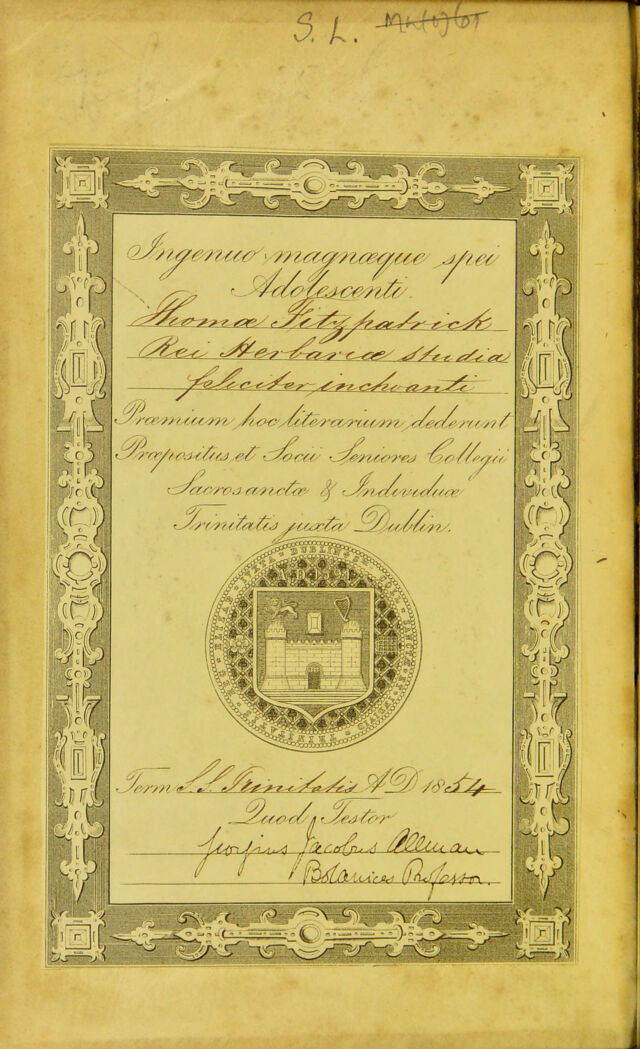 S. L.
Ingenuo magnæque spei
Adolescenti.
Thomæ Fitzpatrick
Rei Herbariæ studia
feliciter inchoanti
Præmium hoc literarium dederunt
Præpositus, et Socii Seniores Collegii
Sacrosanctæ & Individuæ
Trinitatis juxta Dublin.
Term S.S. Trinitatis A D 1854
Quod Testor
Georgius Jacobus Allman
Botanices Professor.